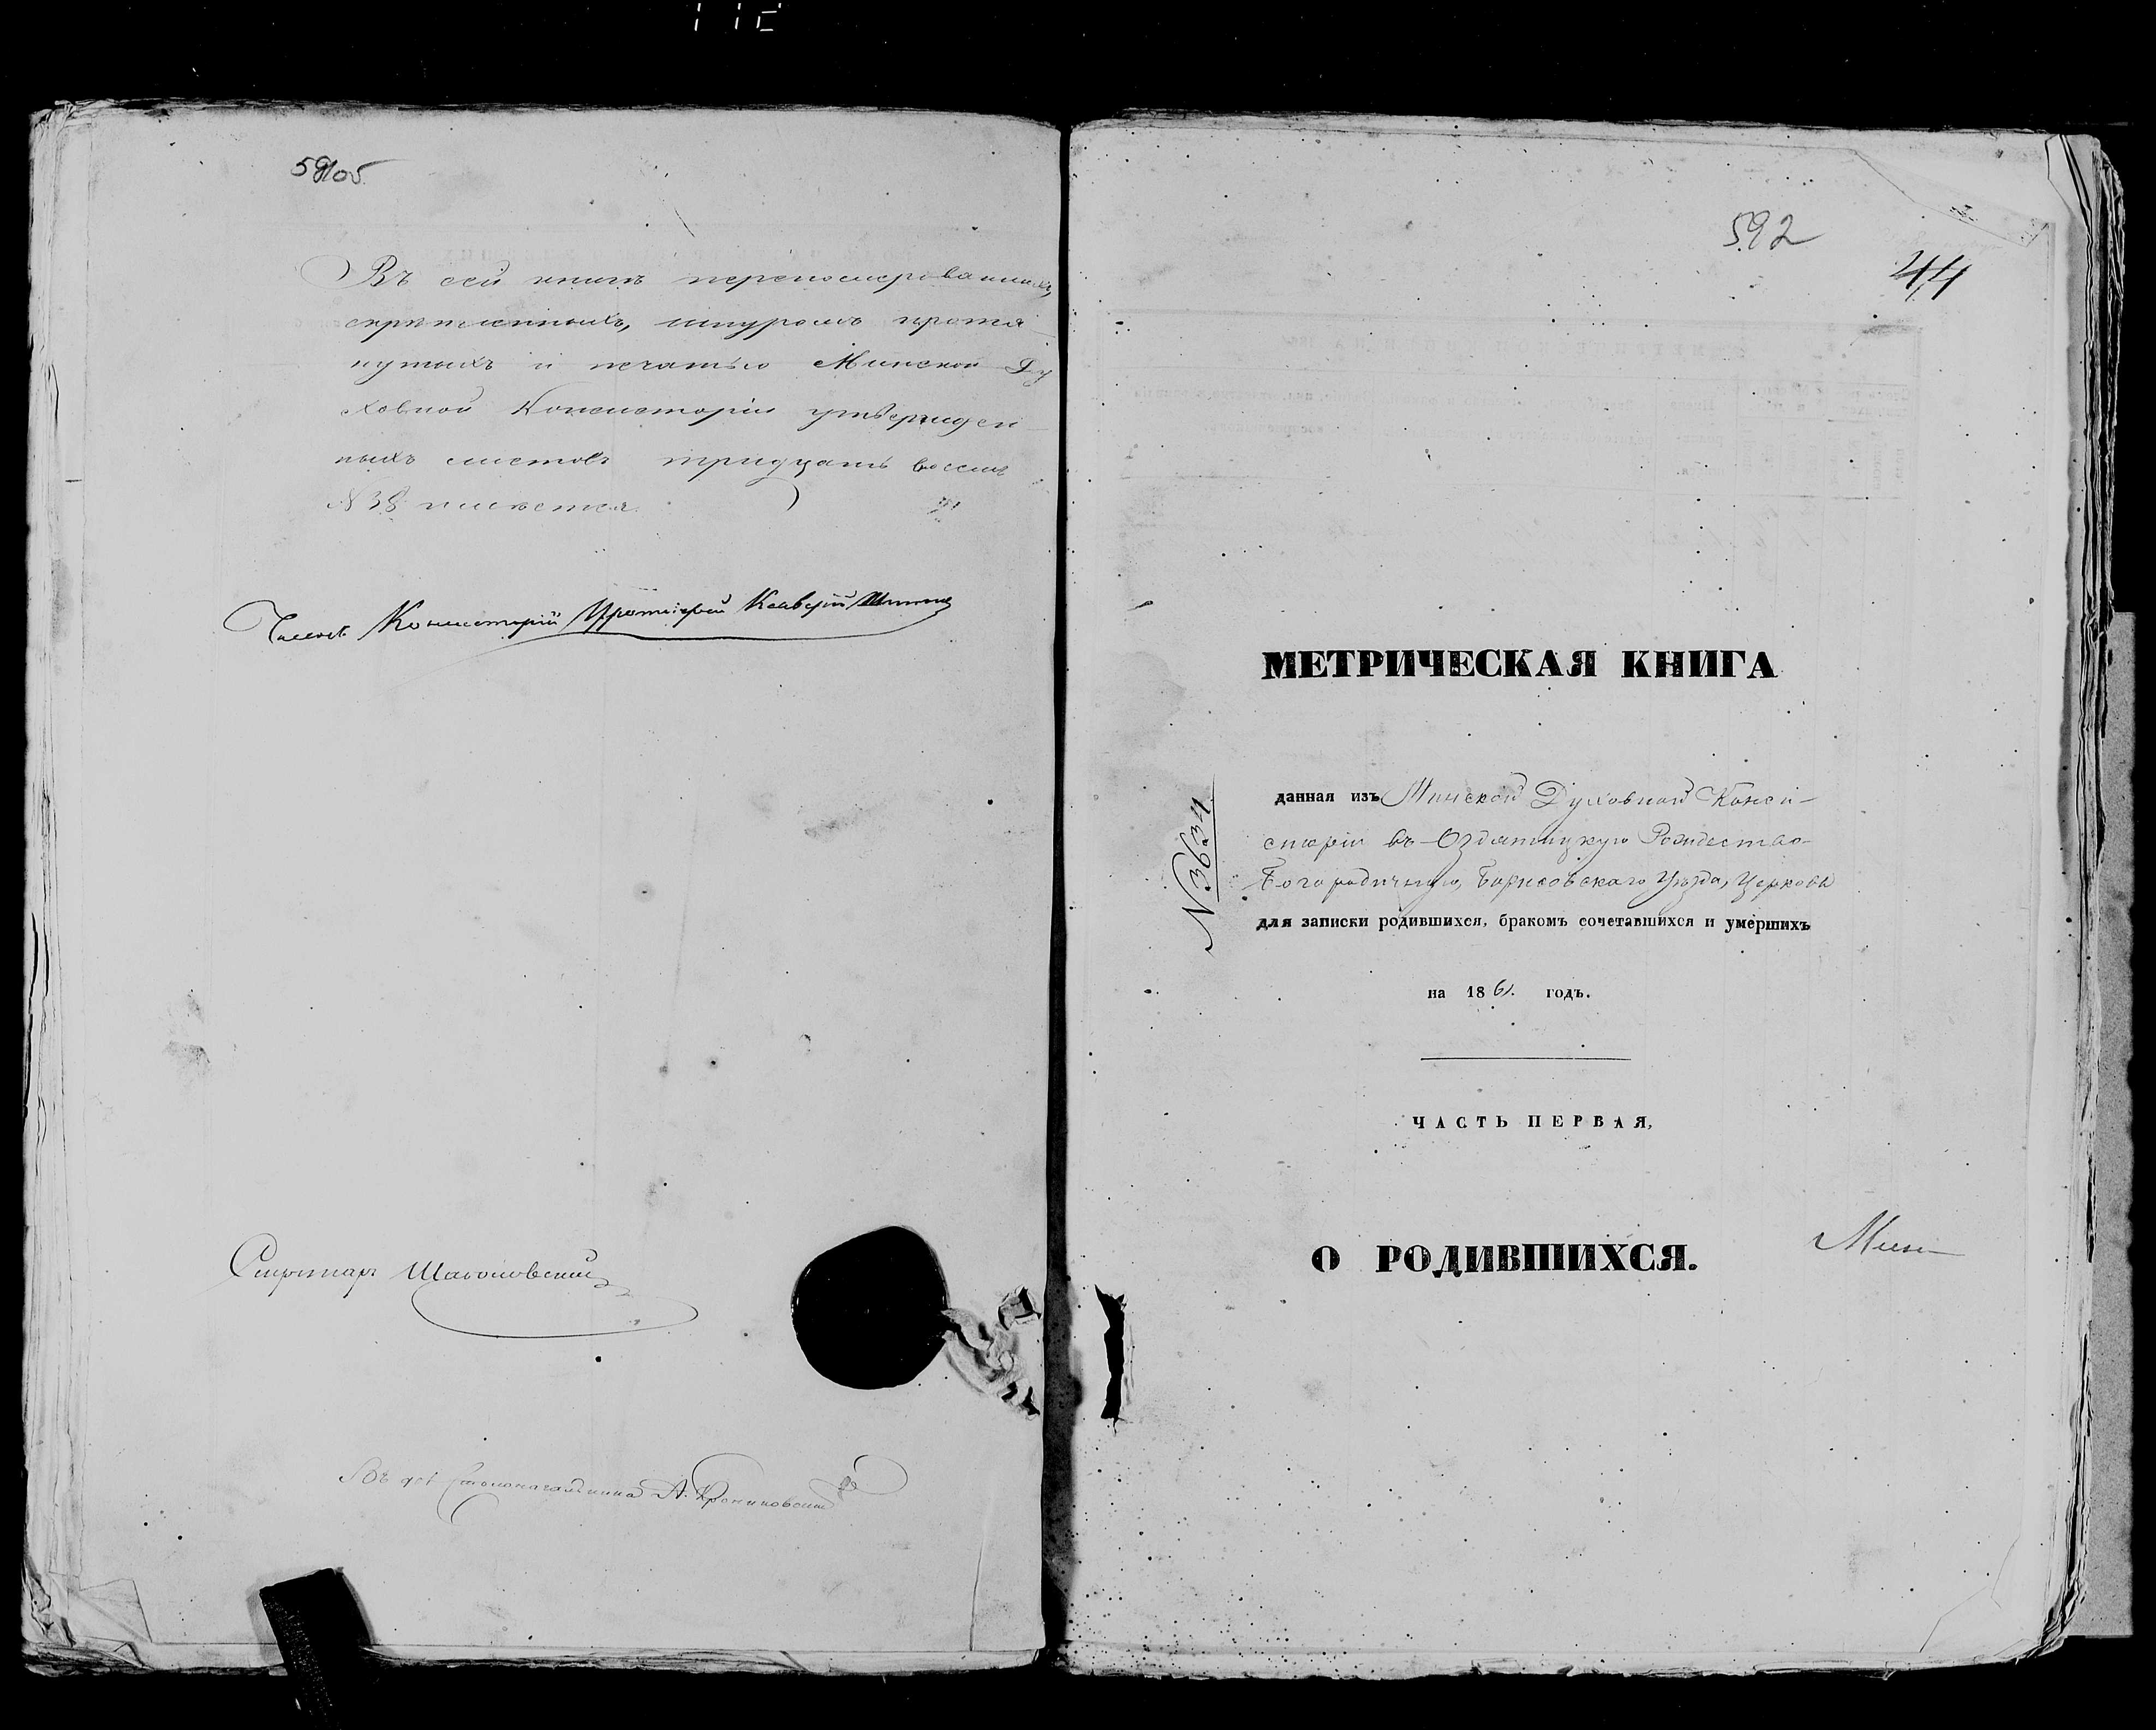 591об.
Въ сей книгѣ перенумерованныхъ,
скрѣпленныхъ, шнуромъ протя-
нутыхъ и печатью Минской Ду
ховной Консисторіи утвержден-
ныхъ листовъ тридцать восемь
№ 38 имѣется.
Членъ Консисторіи Протоіерей
Секретарь
Въ дол. Столоначальника А.
592
44
МЕТРИЧЕСКАЯ КНИГА
№ 3634
данная изъ Минской Духовной Конси-
сторіи въ Оздятицкую Рождество-
Богородичную, Борисовскаго Уѣзда, Церковь
для записки родившихся, бракомъ сочетавшихся и умершихъ
на 1861. годъ.
ЧАСТЬ ПЕРВАЯ,
О РОДИВШИХСЯ.
Мин-